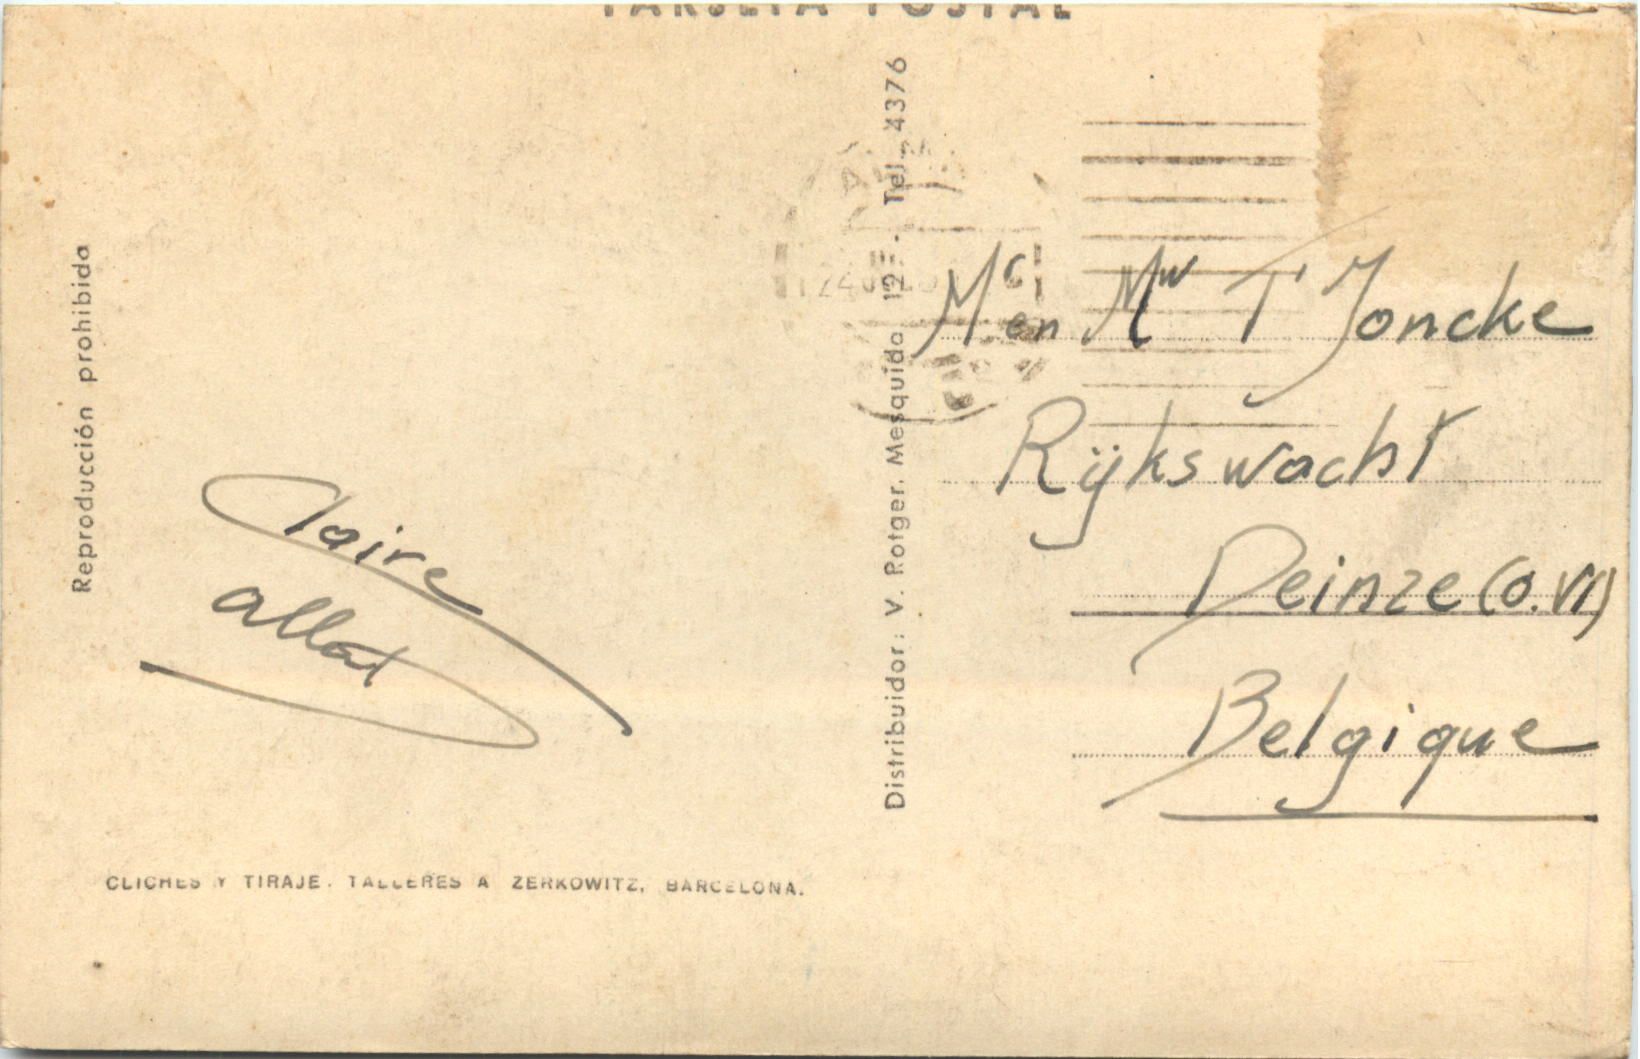 TARJETA POSTAL
Reproducción prohibida
Claire
allat
CLICHES Y TIRAJE. TALLERES A ZERKOWITZ, BARCELONA.
Distribuidor: V. Rotger. Mesquida 12 - Tel. 4376
Mr en Mw T Joncke
Rijkswacht
Deinze (O.Vl)
Belgique